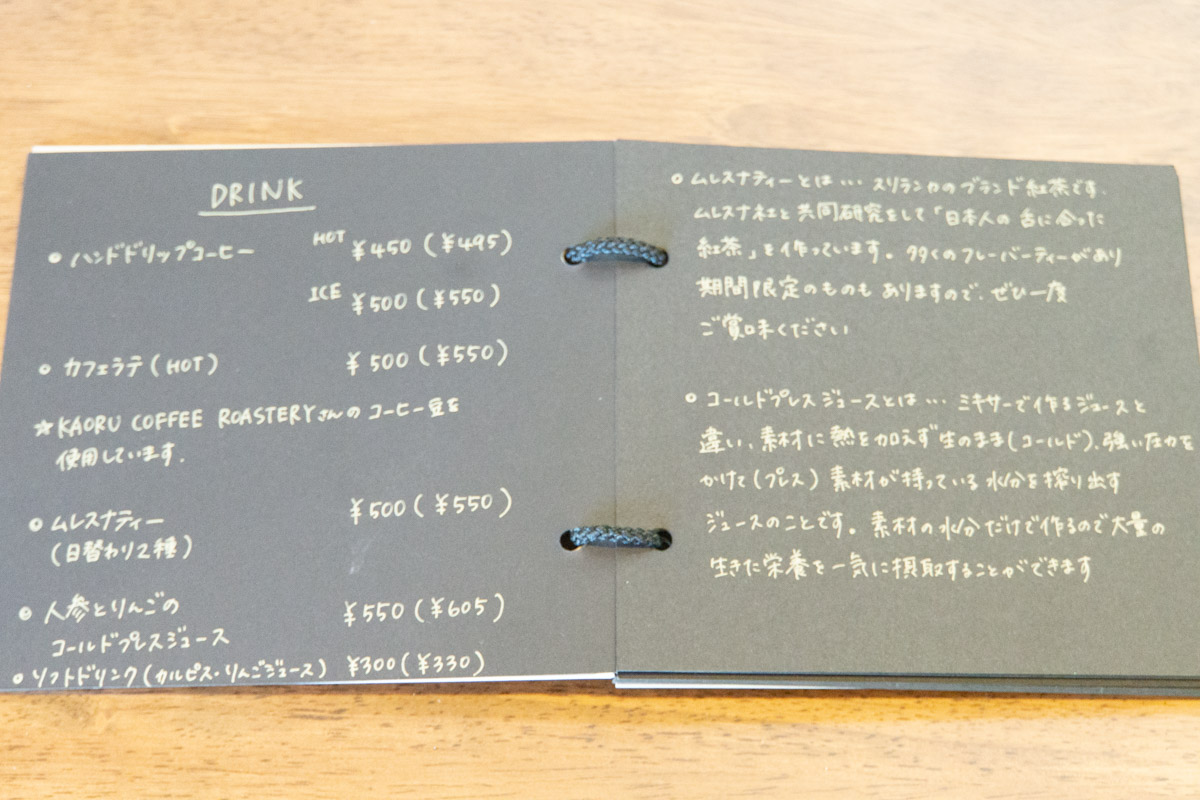 DRINK
• ハンドドリップコーヒー HOT ¥450 (¥495)
ICE ¥500 (¥550)
• カフェラテ (HOT) ¥500 (¥550)
☆KAORU COFFEE ROASTERYさんの コーヒー豆を
使用しています.
• ムレスナティー ¥500 (¥550)
(日替わり2種)
• 人参とりんごの ¥550 (¥605)
コールドプレスジュース
• ソフトドリンク (カルピス・りんごジュース) ¥300 (¥330)
• ムレスナティーとは… スリランカのブランド紅茶です.
ムレスナ社と共同研究をして「日本人の舌に合った
紅茶」を作っています。多くのフレーバーティーがあり
期間限定のものもありますので、ぜひ一度
ご賞味ください
• コールドプレスジュースとは… ミキサーで作るジュースと
違い、素材に熱を加えず生のまま(コールド)、強い圧力を
かけて(プレス) 素材が持っている水分を搾り出す
ジュースのことです。素材の水分だけで作るので大量の
生きた栄養を一気に摂取することができます